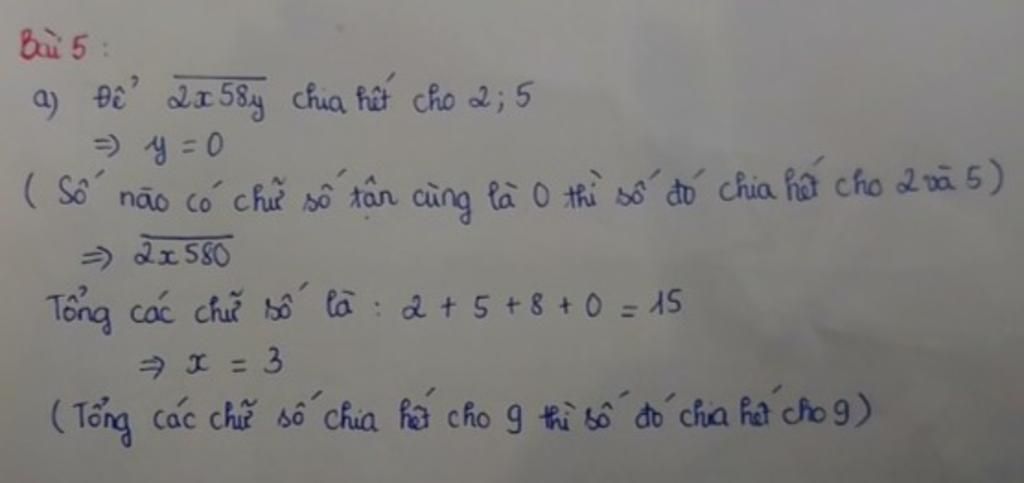 Bài 5 :
a) Để 2x58y chia hết cho 2 ; 5
⇒ y = 0
( Số nào có chữ số tận cùng là 0 thì số đó chia hết cho 2 và 5 )
⇒ 2x580
Tổng các chữ số là : 2 + 5 + 8 + 0 = 15
⇒ x = 3
( Tổng các chữ số chia hết cho 9 thì số đó chia hết cho 9 )